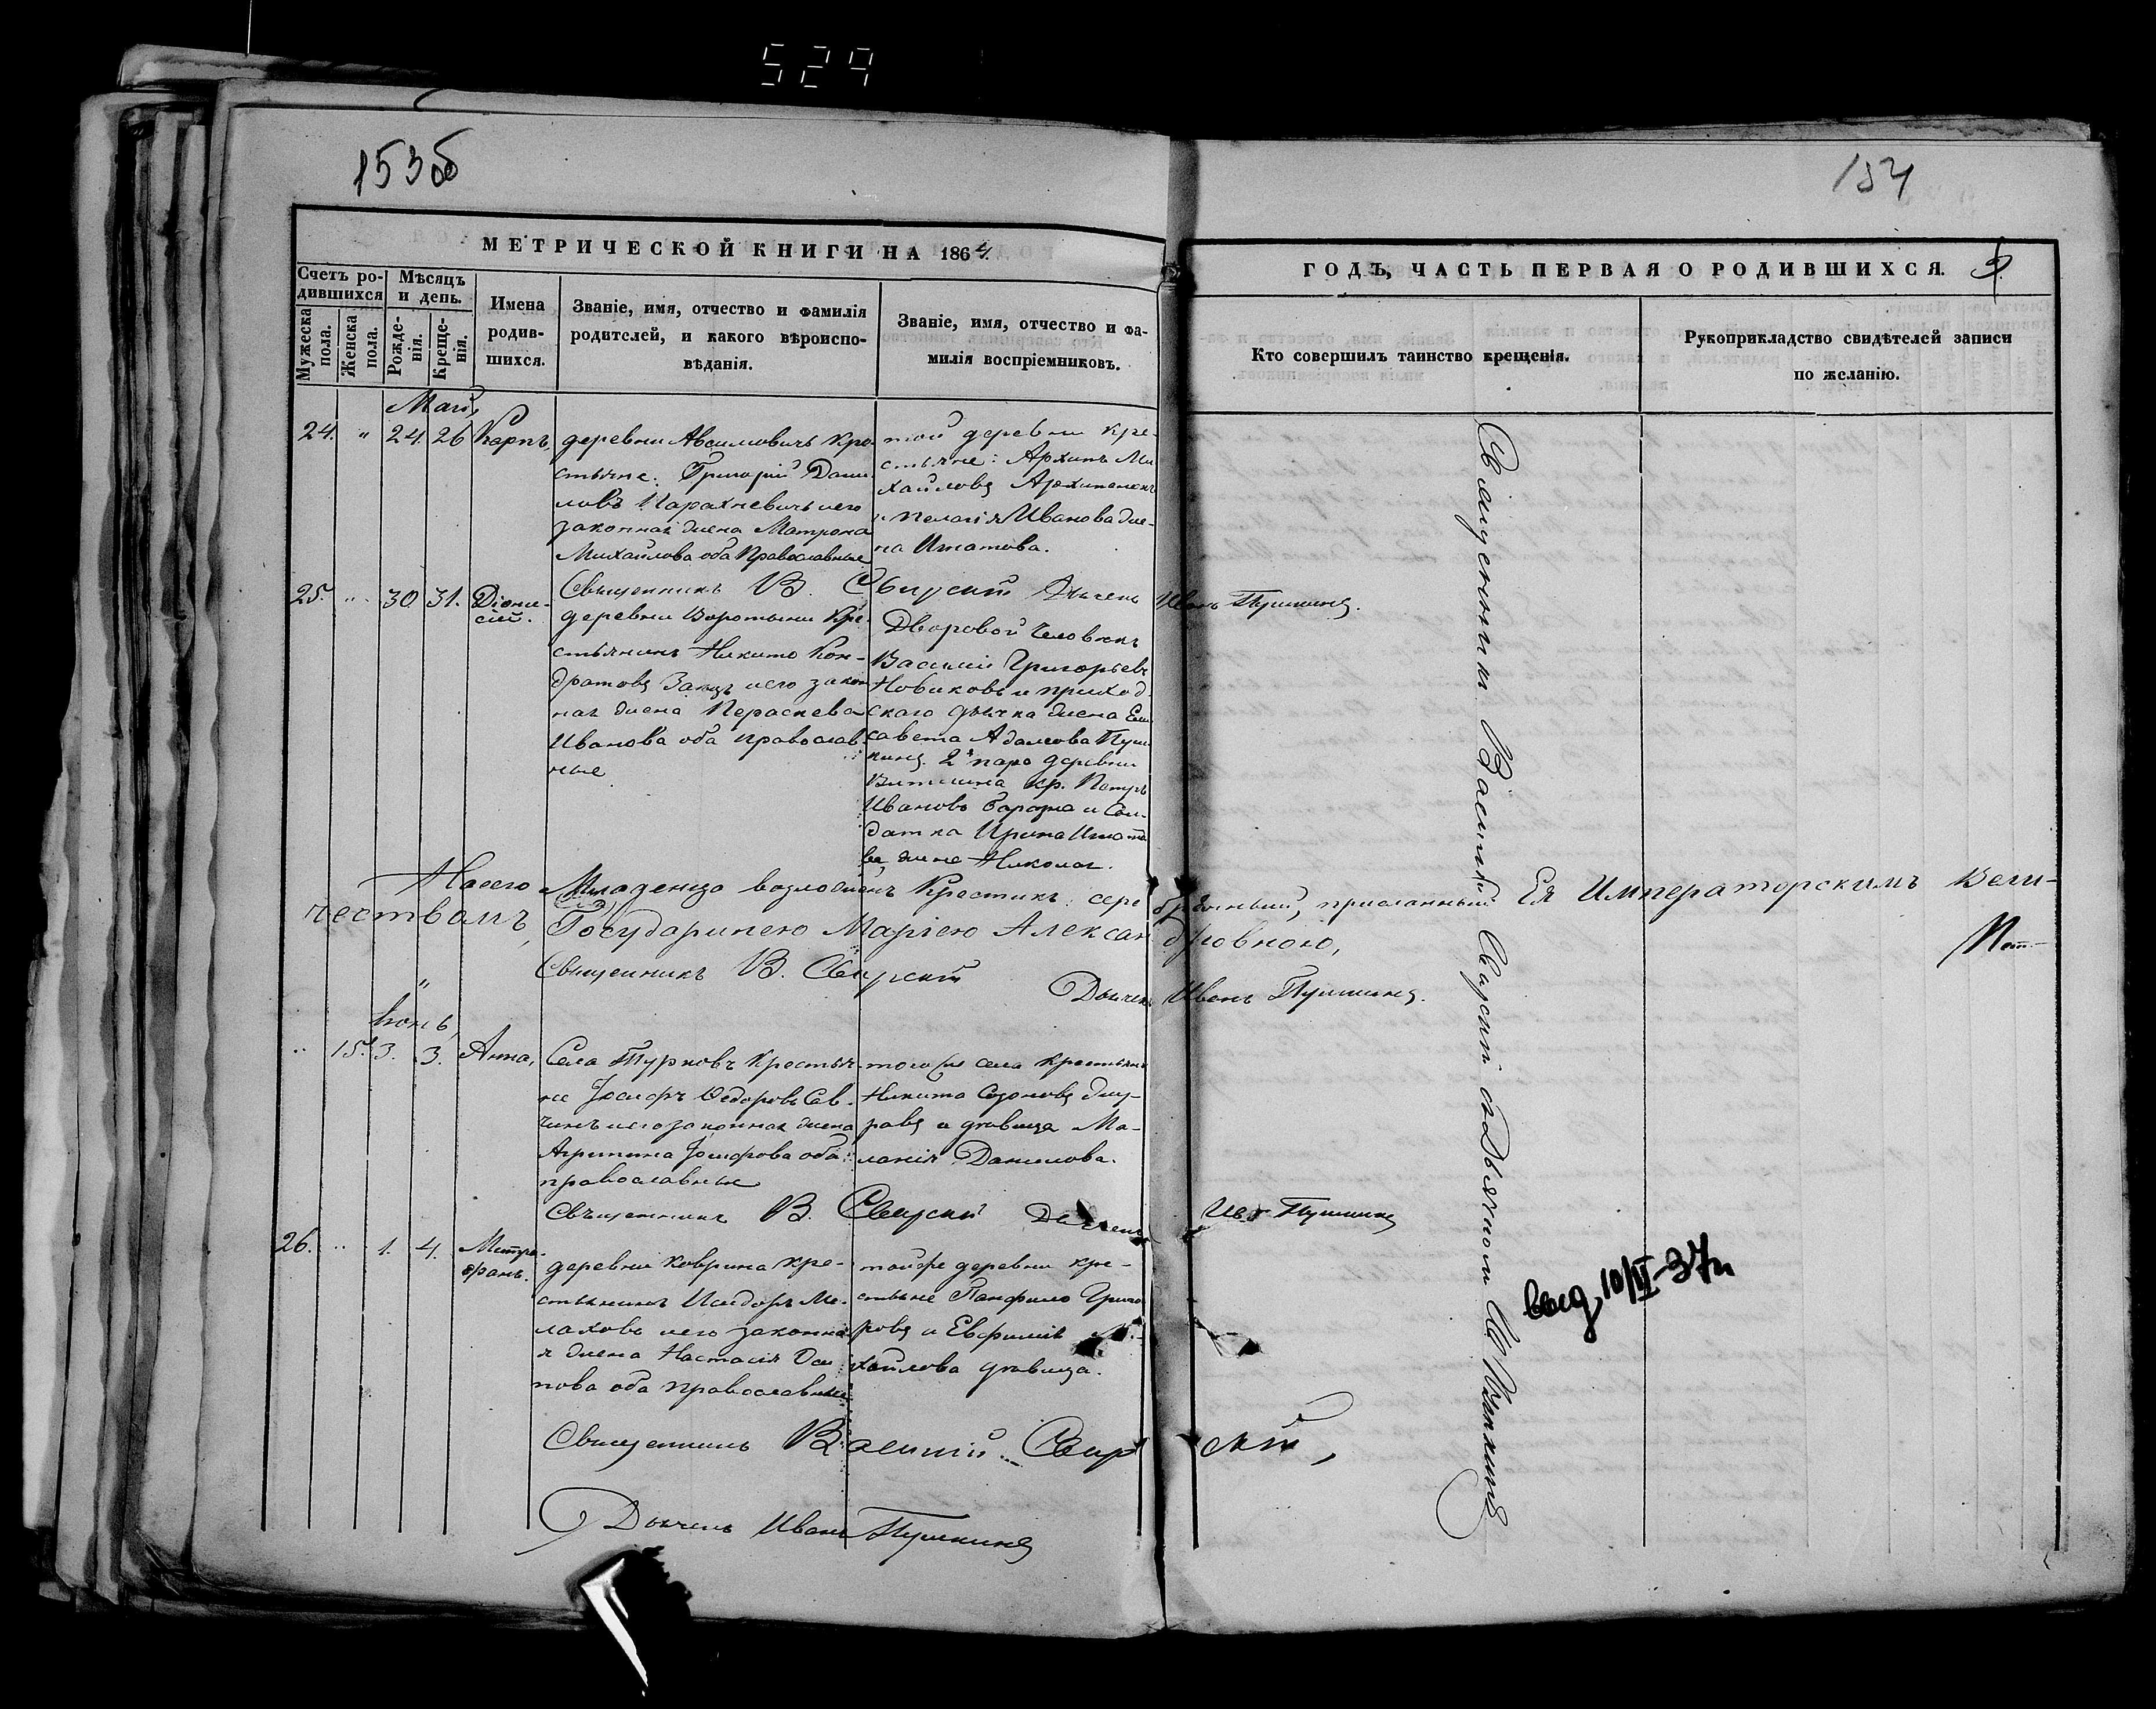 529
153об
154
МЕТРИЧЕСКОЙ КНИГИ НА 1864
ГОДЪ, ЧАСТЬ ПЕРВАЯ О РОДИВШИХСЯ.
Счетъ ро-
дившихся
Мужеска
пола.
Женска
пола.
Мѣсяцъ
и день.
Рожде-
нія.
Креще-
нія.
Имена
родив-
шихся.
Званіе, имя, отчество и фамилія
родителей, и какого вѣроиспо-
вѣданія.
Званіе, имя, отчество и фа-
милія воспріемниковъ.
Кто совершилъ таинство крещенія.
Рукоприкладство свидѣтелей записи
по желанію.
Май,
24. " 24. 26 Карпъ,
деревни кре-
стьяне: Григорій Дани-
ловъ Парахневичъ и его
законная жена Матрона
Михайлова оба Православные
той деревни кре-
стьяне: Архипъ Ми
хайловъ
и Пелагія Иванова же-
на Игнатова.
Священникъ В. Свирскій Дьячекъ Иванъ Пушкинъ.
25. " 30 31. Діони-
сій.
деревни Воротыни Кре-
стьянинъ Никита Кон-
дратовъ Заяцъ и его закон
ная жена Параскева
Иванова оба православ-
ные
Дворовой Человѣкъ
Василій Григорьевъ
Новиковъ и приход
скаго дьячка жена Ели
савета Адамова Пуш
кина. 2я пара деревни
кр. Петръ
Ивановъ и Сол-
датка Ирина Игнато
ва жена Николая.
На сего Младенца возложенъ Крестикъ сере бряный, присланный Ея Императорскимъ Вели-
чествомъ, Государынею Маріею Алексан дровною,
Священникъ В. Свирскій Дьячекъ Иванъ Пушкинъ.
Іюнь,
" 15. 3. 3. Анна,
Села Турковъ Крестья-
не Іосифъ Ѳедоровъ Сав-
чинъ и его законная жена
Агрипина Іосифова оба
православные
того же села крестьяне
Никита
и дѣвица Ма-
ланія Данилова.
Священникъ В. Свирскій Дьячекъ Ив. Пушкинъ
26. " 1. 4. Митро-
фанъ.
деревни Коврина кре-
стьянинъ Исидоръ Ма-
лаховъ и его законна-
я жена Настасія Оси-
пова оба православные
той же деревни кре-
стьяне Панфилъ Григо
ровъ и Евфимія Ми-
хайлова дѣвица.
Священникъ Василій Свирскій,
Дьячекъ Иванъ Пушкинъ
Священникъ Василій Свирскій съ Дьячкомъ И. Пушкинъ
выд. 10/VI-37г